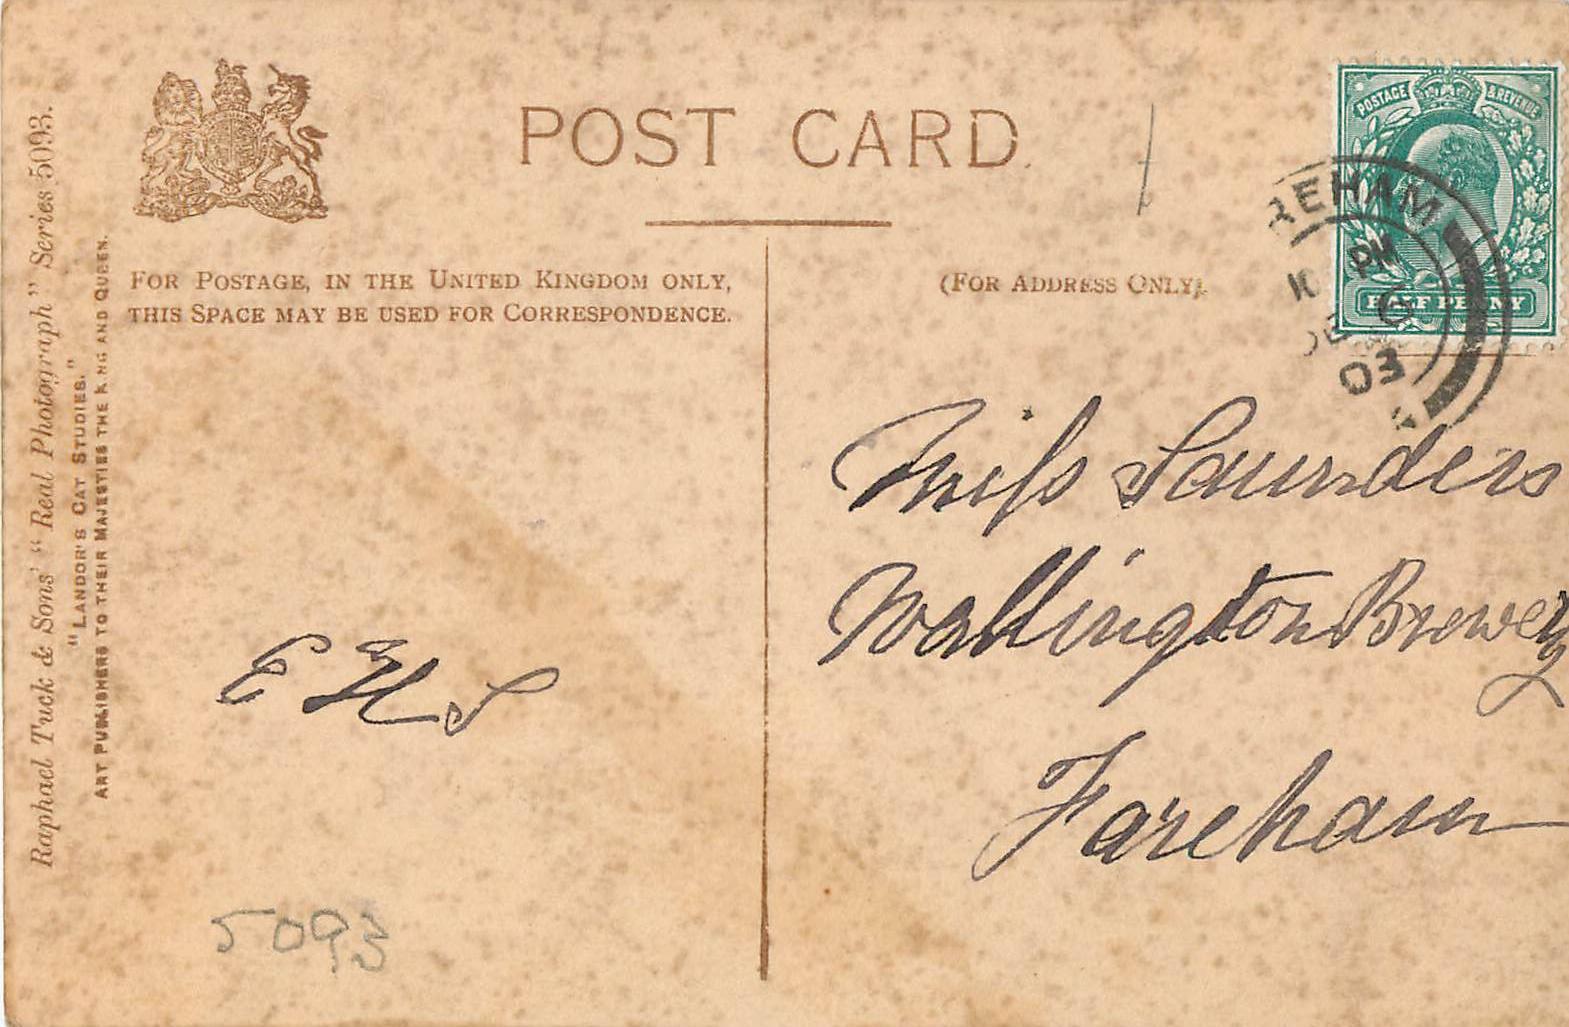 Raphael Tuck & Sons' "Real Photograph" Series 5093.
"LANDOR'S CAT STUDIES."
ART PUBLISHERS TO THEIR MAJESTIES THE KING AND QUEEN.
POST CARD
FOR POSTAGE, IN THE UNITED KINGDOM ONLY,
THIS SPACE MAY BE USED FOR CORRESPONDENCE.
(FOR ADDRESS ONLY).
POSTAGE & REVENUE
HALF PENNY
REHAM
PM
03
Miss Saunders
Wallington Brewery
Fareham
E H S
5093